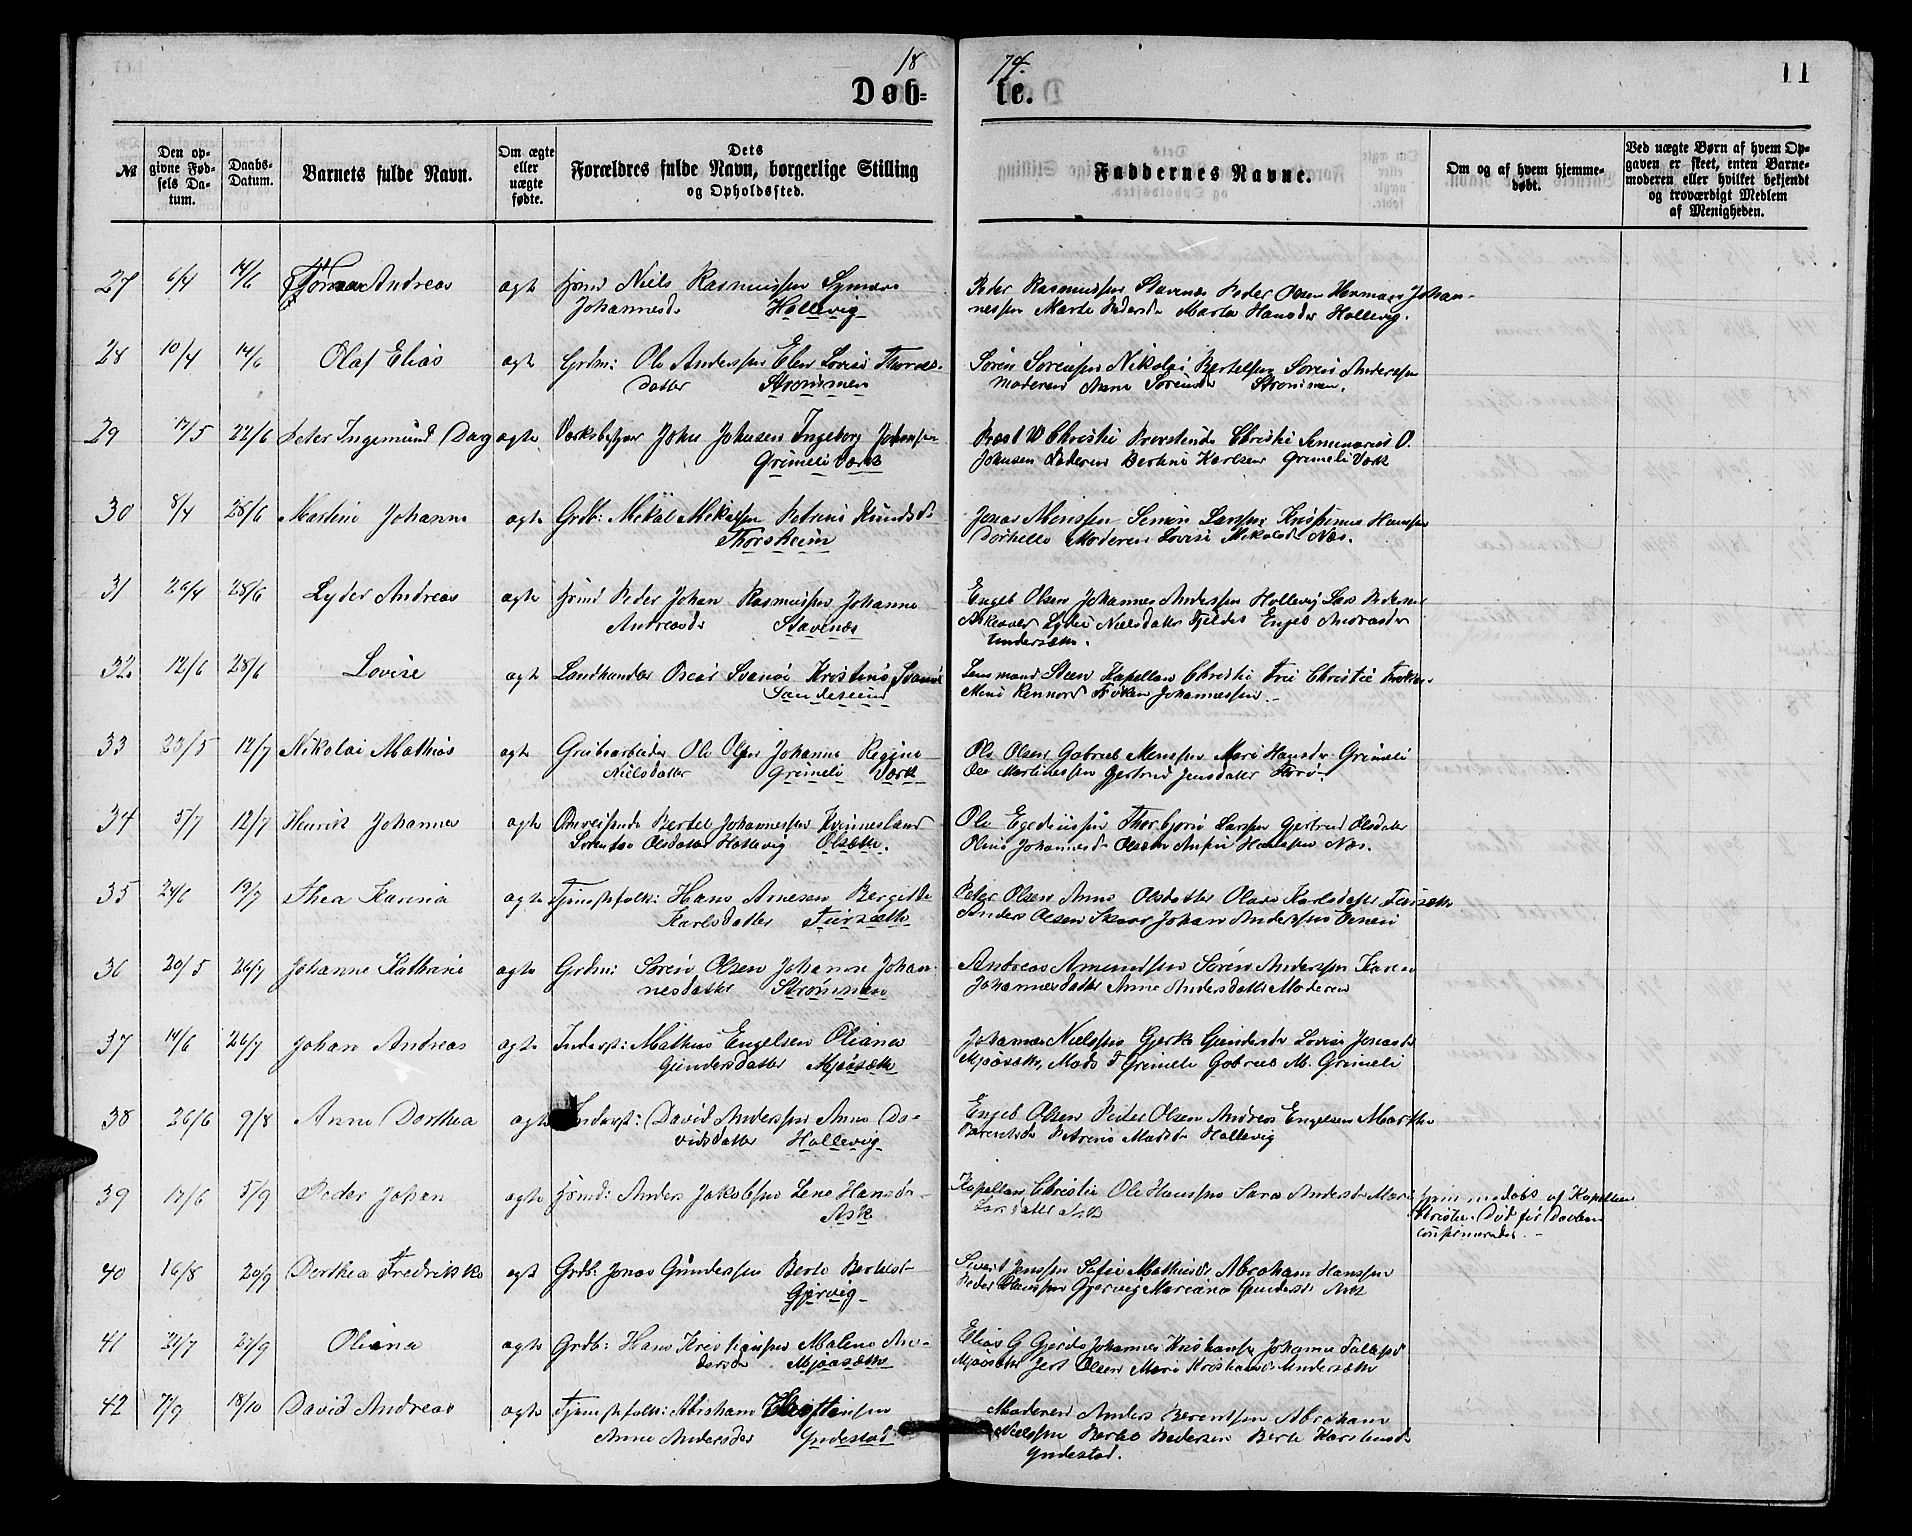 18 74. 11
Døb= te.
№
Den op-
givne Fød-
sels Da-
tum.
Daabs-
Datum.
Barnets fulde Navn.
Om ægte
eller
uægte
fødte.
Dets
Forældres fulde Navn, borgerlige Stilling
og Opholdssted.
Faddernes Navne.
Om og af hvem hjemme-
døbt.
Ved uægte Børn af hvem Op-
gaven er skeet, enten Barne-
moderen eller hvilket bekjendt
og troværdigt Medlem
af Menigheden.
27 6/4 14/6 Andreas ægte Niels Rasmussen
Johannesd Hellevig
Peder Rasmussen Stavenes Peder Olsen Herman Johan-
nessen Marte Pedersd Marta Hansdr Hellevig.
28 10/4 14/6 Olaf Elias ægte Grdm: Ole Anderssen Elen Lovise Thomas-
datter Strømmen
Søren Sørensen Nikolai Bertelsen Søren Anderssen
Moderen Anne Sørensdr Strømmen.
29 17/5 22/6 Peter Ingemund Dag ægte Værksbestyrer John Johnsen Ingeborg Johnsen
Grimeli Værk
Provst W Christie Provstinde Christie Seminarist O.
Johnsen Faderen Bertine Karlsen Grimeli Værk
30 8/4 28/6 Martine Johanne ægte Grdb: Mikal Mikalsen Petrine Knudsd.
Thorsheim
Jonas Monssen Simon Larssen Kristense Hanssen
Dorthella Moderen Lovise Mikalsd Næs.
31 26/4 28/6 Lyder Andreas ægte Peder Johan Rasmussen Johanne
Andreasdr Stavenæs
Engeb Olsen Johannes Anderssen Hellevig Lars Pedersen
Askeaver Lydie Nielsdatter Tjeldes Engeb Andreasdr
Undersæth.
32. 12/6 28/6 Lovise ægte Landhandler Oscar Svanøe Kristine Svanøe
Sandesund
Lensmand Steen Kapellan Christie Frue Christie Frøken
Mina Rennord Frøken Johannessen.
33 23/5 12/7 Nikolai Mathias ægte Grubearbeider Ole Olsen Johanne Regine
Nielsdatter Grimeli Værk
Ole Olsen Gabriel Monssen Mari Hansdr Grimeli
Ole Martinussen Gjertrud Jensdatter
34 5/7 12/7 Henrik Johannes ægte Omreisende Bertel Johannessen Kvinnesland
Olsdatter Hellevig Olsæth.
Ole Egediussen Thorbjørn Larssen Gjertrud Olsdatter
Oline Johannesd Hanssen Næs.
35 24/6 19/7 Thea Karina ægte Tjenestefolk: Hans Arnesen Bergitte
Karlsdatter Fursæth
Peter Olsen Anne Olsdatter Olava Karlsdatter Fursæth
Anders Olsen Skaar Johan Anderssen
36 20/5 26/7 Johanne Kathrine ægte Grdm: Søren Olsen Johanne Johan-
nesdatter Strømmen
Andreas Amundsen Søren Anderssen Karen
Johannesdatter Anne Andersdatter Moderen
37 14/6 26/7 Johan Andreas ægte Inderst: Mathias Engelsen Oliana
Gundersdatter Mjøåsæth
Johannes Nielssen Gjerte Gundersdr Lovise Jonasdr
Mjøåsæth, Mads d Grimeli Gabriel M. Grimeli
38 26/6 9/8 Anne Dorthea ægte Inderst: David Anderssen Anne Da-
vidsdatter Hellevig
Engeb Olsen Peder Olsen Andreas Engelsen Marthe
Berentsdr Petrine Madsdr Hellevig
39 17/6 5/9 Peder Johan ægte Anders Jakobssen Lene Hansdr
Ask
Kapellan Christie Ole Hanssen Sara Andersdr Mari
Larsdatter Ask
hjemmedøbt af Kapellan
Christie. Død før Daaben
confirmeredes.
40 16/8 20/9 Dorthea Fredrikke ægte Grdb: Jonas Gunderssen Berte Bertelsd
Gjervig
Sivert Jenssen Sofie Mathiasdr Abraham Hanssen
Peder Hanssen Gjervig Mariane Gundersdr Ask
41 21/7 27/9 Oliana ægte Grdb: Hans Kristianssen Malene An-
dersdr Mjøåsæth
Elias G Gjerde Johannes Kristiansen Johanne
Mjøåsæth Jens Olsen Mari Kristiansdr Undersæth
42 7/9 18/10 David Andreas ægte Tjenestefolk: Abraham
Anne Andersdr Yndestad
Moderen Anders Berentsen Abraham
Nielssen Berte Pedersen Berte Karstensdr
Yndestad.